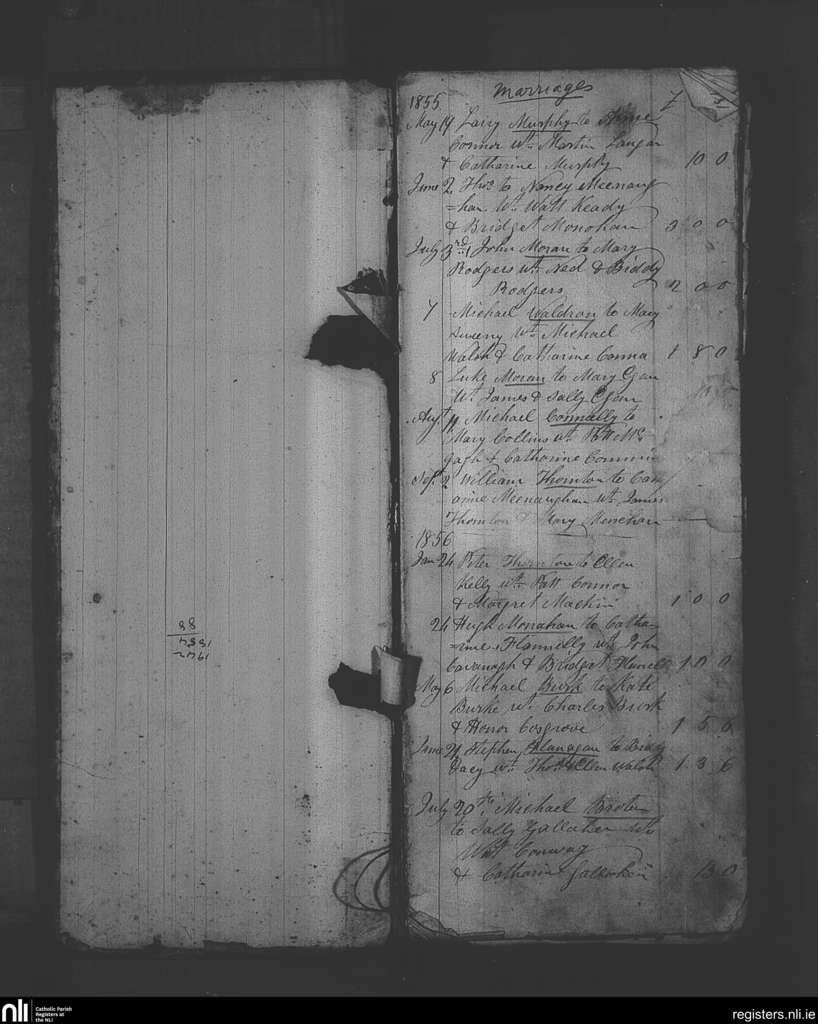 Marriages
1855
May 14 Larry Murphy to Anne
Connor wt. Martin Langan
& Catharine Murphy 10 0
June 2 Thos to Nancy Meenaug
=han Wt. Watt Keady
& Bridget Monohan 3 0 0
July 3rd John Moran to Mary
Rodgers wt. Ned & Biddy
Rodgers 2 0 0
7 Michael Waldron to Mary
Sweeny Wt. Michael
Walsh & Catharine Conna 1 8 0
8 Luke Moran to Mary Egan
Wt. James & Sally Egan
Augt 11 Michael Connally to
Mary Collins wt.
& Catharine
Sept 2 William Thornton to
Meenaughan wt. James
Thornton & Mary Monehan
1856
Jan 24 Peter Thornton to Ellen
Kelly wt. Patt Connor
& Margret 1 0 0
24 Hugh Monahan to Catha-
=rine Flannelly wt. John
Cavanagh & Bridget 1 0 0
May 6 Michael Burk to Kate
Burke wt. Charles Burk
& Honor Cosgrove 1 5 6
June 21 Stephen Flanagan to
wt. Thos & Ellen Walsh 1 3 6
July 20th Michael
to Sally Gallaher
Watt Conway
& Catharine
88
1854
1942
nli
Catholic Parish
Registers at
the NLI
registers.nli.ie